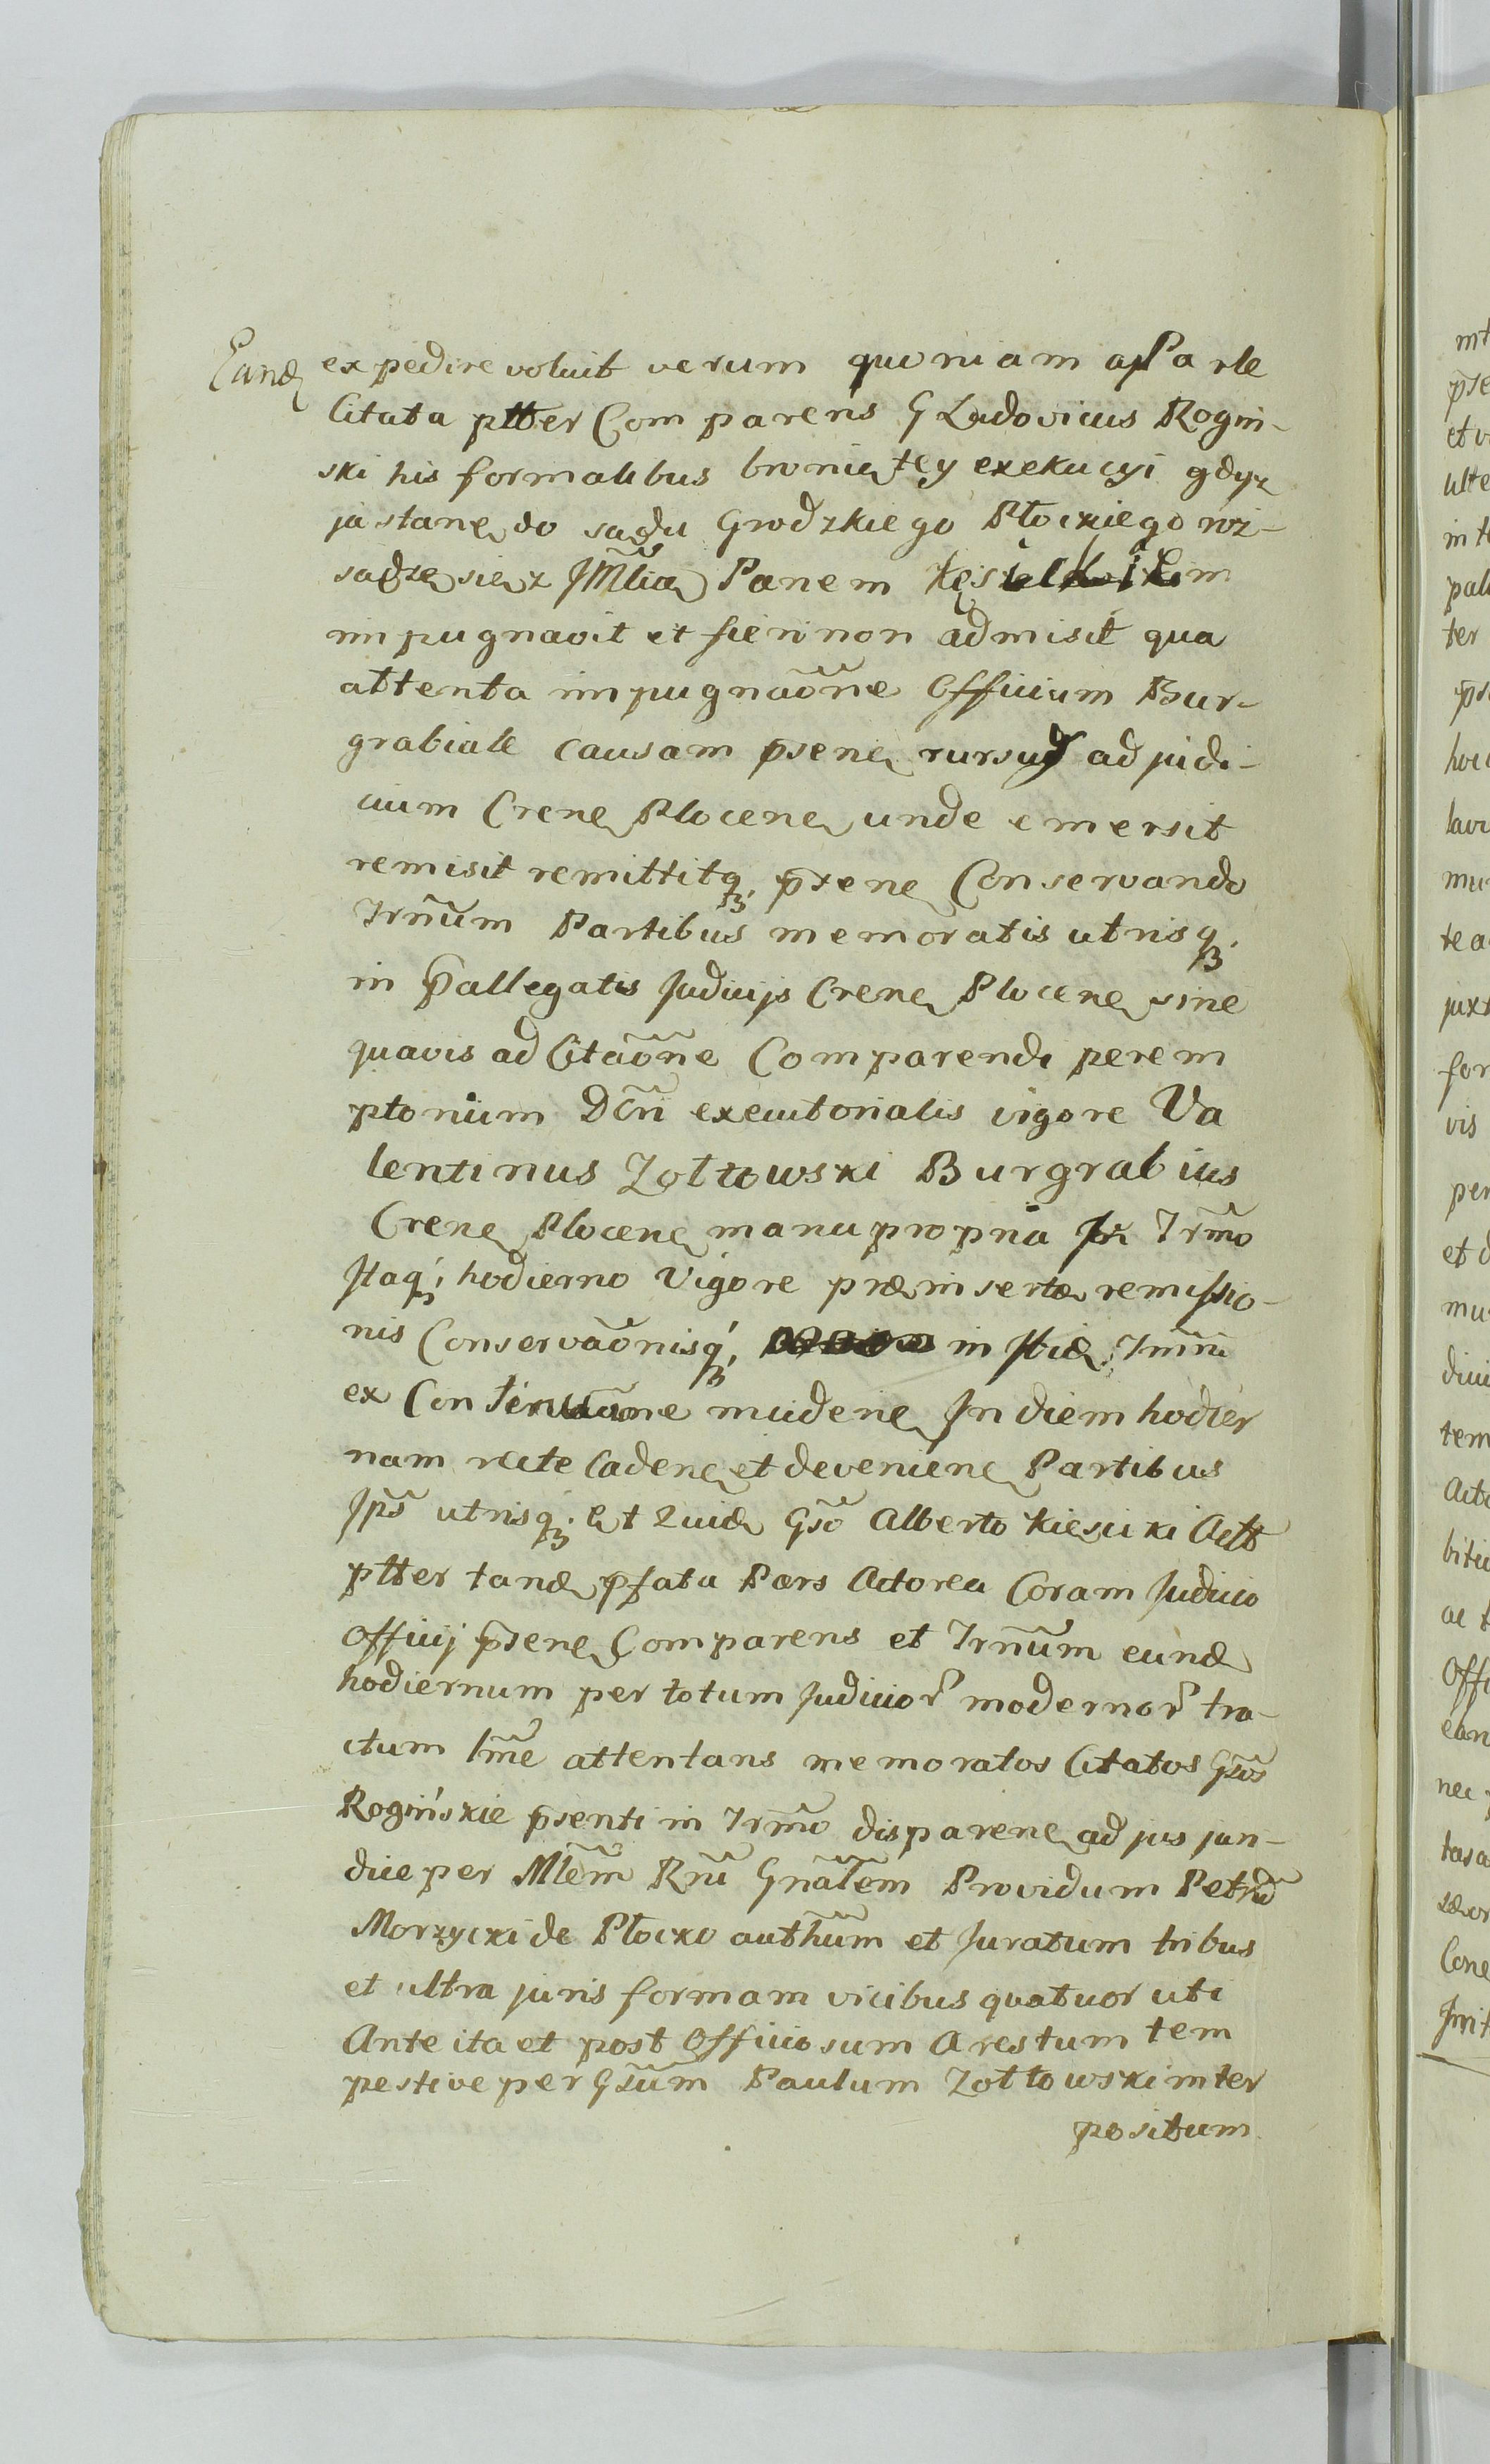 Eand expedire voluit verum quoniam a Parte
Citata ptter Comparens G Ludovicus Rogin-
ski his formalibus bronię tey exekucyi gdyz
ja stanę do sądu Grodzkiego Płockiego roz-
sądzę się z JMścią Panem
impugnavit et fieri non admisit qua
attenta impugnaõne Officium Bur-
grabiale causam psenę rursus ad judi-
cium Crenę Plocenę unde emersit
remisit remittitq; psenę Conservando
Trñum Partibus memoratis utrisq;
in pallegatis Judicijs Crenę Plocenę sine
quavis ad Citaõne Comparendi perem
ptorium Dõri executorialis vigore Va
lentinus Zołtowski Burgrabius
Crenę Plocenę manu propria In Trmo
Itaq; hodierno Vigore præinsertæ remissio-
nis Conservaõnisq; in
ex Con mudenę In diem hodier
nam recte Cadenę et devenienę Partibus
Jps utrisq; et Quid Gso Alberto Kięsicki Actt
ptter tand pfata Pars Actorea Coram Judicio
Officij psenę Comparens et Trñum eund
hodiernum per totum Judicior modernor tra-
ctum lme attentans memoratos Citatos Gsos
Rogińskie psenti in Trmo disparenę ad jus juri-
dice per Mlem Rni Gnalem Providum Petrũ
Morzycki de Płocko authum et Juratum tribus
et ultra juris formam vicibus quatuor uti
Ante ita et post Officiosum Arestum tem
pestive per Gsum Paulum Zołtowski inter
positum